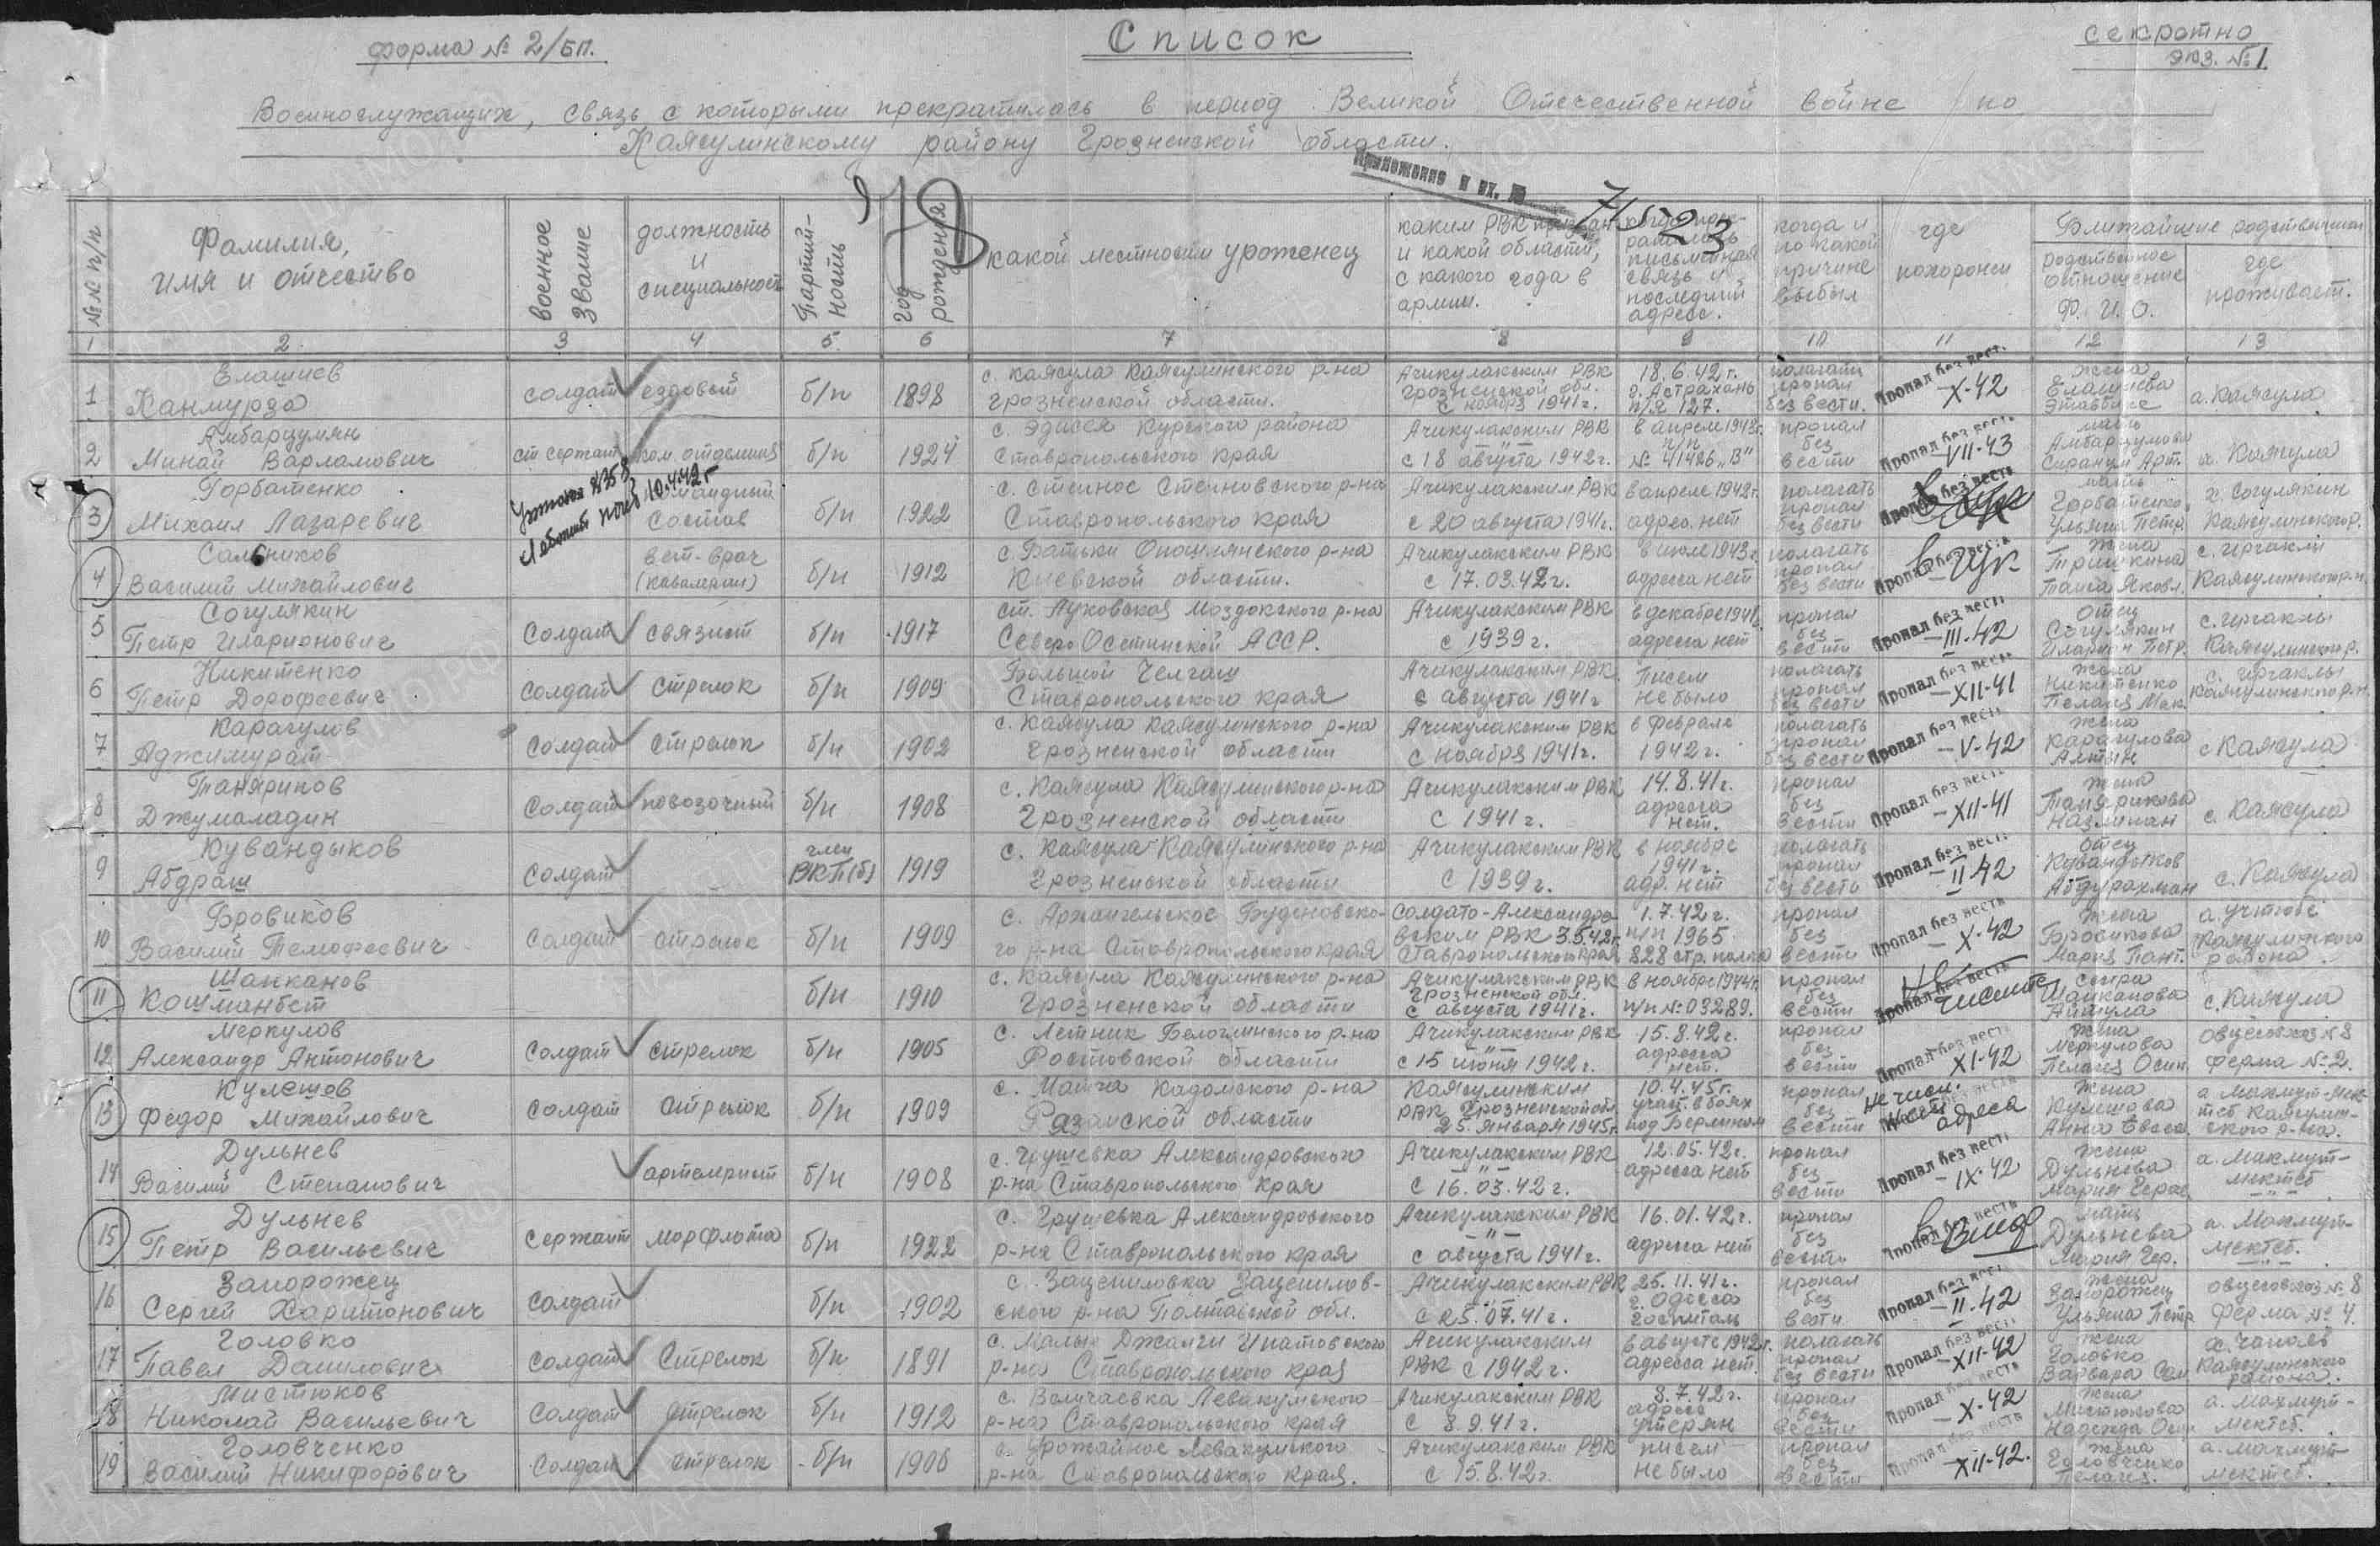 форма № 2/БП.
Список
секретно
экз. № 1
Военнослужащих, связь с которыми прекратилась в период Великой Отечественной войне по
Каясулинскому району Грозненской области.
Приложение к вх. №
71523
918
№№ п/п
Фамилия, имя и отчество
военное звание
должность и специальность
Партийность
год рождения
какой местности уроженец
каким РВК призван и какой области, с какого года в армии.
когда прекратилась письменная связь и последний адрес.
когда и по какой причине выбыл
где похоронен
Ближайшие родственники
родственное отношение Ф. И. О.
где проживает.
1 2 3 4 5 6 7 8 9 10 11 12 13
1 Елашиев Канмурза солдат ездовый б/п 1898 с. Каясула Каясулинского р-на Грозненской области. Ачикулакским РВК Грозненской обл. с ноября 1941г. 18.6.42г. г. Астрахань п/я 127. полагать пропал без вести. Пропал без вести –X-42 жена Елашиева а. Каясула
2 Амбарцумян Минай Варламович ст сержант ком. отделения б/п 1924 с. Эдисея Курского района Ставропольского края Ачикулакским РВК с 18 августа 1942г. в апреле 1943г. п/п № 41426 „В" пропал без вести Пропал без вести –VII-43 мать Амбарцумова Сиранум Арт. а. Каясула
3 Горбатенко Михаил Лазаревич командный состав б/п 1922 с. Степное Степновского р-на Ставропольского края Ачикулакским РВК с 20 августа 1941г. в апреле 1942г. адрес. нет полагать пропал без вести Пропал без вести мать Горбатенко Ульяна Петр. х. Согулякин Каясулинского р.
10.4.42г
4 Сальников Василий Михайлович вет-врач (кавалерии) б/п 1912 с. Батьки Опошлянского р-на Киевской области. Ачикулакским РВК с 17.03.42г. в июле 1943г. адреса нет полагать пропал без вести Пропал без вести жена Тришкина Таиса Яковл. с. Иргаклы Каясулинского р-н.
5 Согулякин Петр Иларионович Солдат связист б/п 1917 ст. Луковская Моздокского р-на Северо Осетинской АССР. Ачикулакским РВК с 1939г. в декабре 1941 адреса нет пропал без вести Пропал без вести –III-42 Отец Согулякин Иларион Петр. с. Иргаклы Каясулинского р.
6 Никитенко Петр Дорофеевич солдат стрелок б/п 1909 Большой Челгаш Ставропольского края Ачикулакским РВК. с августа 1941г Писем не было полагать пропал без вести Пропал без вести –XII-41 жена Никитенко Пелагея Мак. с. Иргаклы Каясулинского р-н
7 Карагулов Аджимурат солдат стрелок б/п 1902 с. Каясула Каясулинского р-на Грозненской области Ачикулакским РВК с ноября 1941г. в феврале 1942г. полагать пропал без вести Пропал без вести –V-42 жена Карагулова Алтын с Каясула
8 Таняриков Джумаладин солдат повозочный б/п 1908 с. Каясула Каясулинского р-на Грозненской области Ачикулакским РВК с 1941г. 14.8.41г. адреса нет. пропал без вести Пропал без вести –XII-41 жена Танярикова Назлихан с. Каясула
9 Кувандыков Абдраш Солдат член ВКП(б) 1919 с. Каясула Каясулинского р-на Грозненской области Ачикулакским РВК с 1939г. в ноябре 1941г. адр. нет полагать пропал без вести Пропал без вести –II-42 Отец Кувандыков Абдурахман с. Каясула
10 Бровиков Василий Темофеевич солдат стрелок б/п 1909 с. Архангельское Буденовского р-на Ставропольского края Солдато-Александровским РВК 3.5.42г. Ставропольского края 1.7.42г. п/п 1965 828 стр. полка пропал без вести Пропал без вести –X-42 жена Бровикова Мария Пант. а. Учтюбе Каясулинского района
11 Шапканов Кошманбет б/п 1910 с. Каясула Каясулинского р-на Грозненской области Ачикулакским РВК Грозненской обл. с августа 1941г. в ноябре 1944г. п/п № 03289. пропал без вести Пропал без вести Не числится сестра Шапканова с. Каясула
12 Меркулов Александр Антонович солдат стрелок б/п 1905 с. Летник Белоглинского р-на Ростовской области Ачикулакским РВК с 15 июня 1942г. 15.8.42г. адреса нет. пропал без вести Пропал без вести XI-42 жена Меркулова Пелагея Осип. Овцесовхоз № 8 ферма № 2.
13 Кулешов Федор Михайлович солдат стрелок б/п 1909 с. Кадомского р-на Рязанской области Каясулинским РВК Грозненской обл. 25. января 1945г. 10.4.45г. участ. в боях под Берлином пропал без вести Не числ. нет адреса жена Кулешова Анна Евсе. а Махмут-Мектеб Каясулинского р-на.
14 Дульнев Василий Степанович артелерист б/п 1908 с. Грушевка Александровского р-на Ставропольского края Ачикулакским РВК с 16.03.42г. 12.05.42г. адреса нет пропал без вести Пропал без вести –IX-42 жена Дульнева Мария Герас. а. Махмут-мектеб
15 Дульнев Петр Васильевич Сержант морфлота б/п 1922 с. Грушевка Александровского р-на Ставропольского края Ачикулакским РВК с августа 1941г. 16.01.42г. адреса нет пропал без вести Пропал без вести мать Дульнева Мария Гер. а. Махмут-мектеб.
16 Запорожец Сергей Харитонович солдат б/п 1902 с. Зацепиловка Зацепиловского р-на Полтавской обл. Ачикулакским РВК с 25.07.41г. 25.11.41г. г. Одесса госпиталь пропал без вести. Пропал без вести –II-42 жена Запорожец Ульяна Петр Овцесовхоз № 8 ферма № 4.
17 Головко Павел Данилович солдат стрелок б/п 1891 с. Малые Джалги Ипатовского р-на Ставропольского края Ачикулакским РВК с 1942г. в августе 1942г. адреса нет. полагать пропал без вести Пропал без вести –XII-42 жена Головко Варвара Сем х. Чапаев Каясулинского района.
18 Мистюков Николай Васильевич солдат стрелок б/п 1912 с. Величаевка Левакумского р-на Ставропольского края Ачикулакским РВК с 8.9.41г. 8.7.42г. адрес утерян пропал без вести Пропал без вести –X-42 жена Мистюкова Надежда Осип а. Махмут-мектеб.
19 Головченко Василий Никифорович солдат стрелок б/п 1906 с. Урожайное Левакумского р-на Ставропольского края. Ачикулакским РВК с 15.8.42г. писем не было пропал без вести Пропал без вести –XII-42. жена Головченко Пелагея. а. Махмут-мектеб.